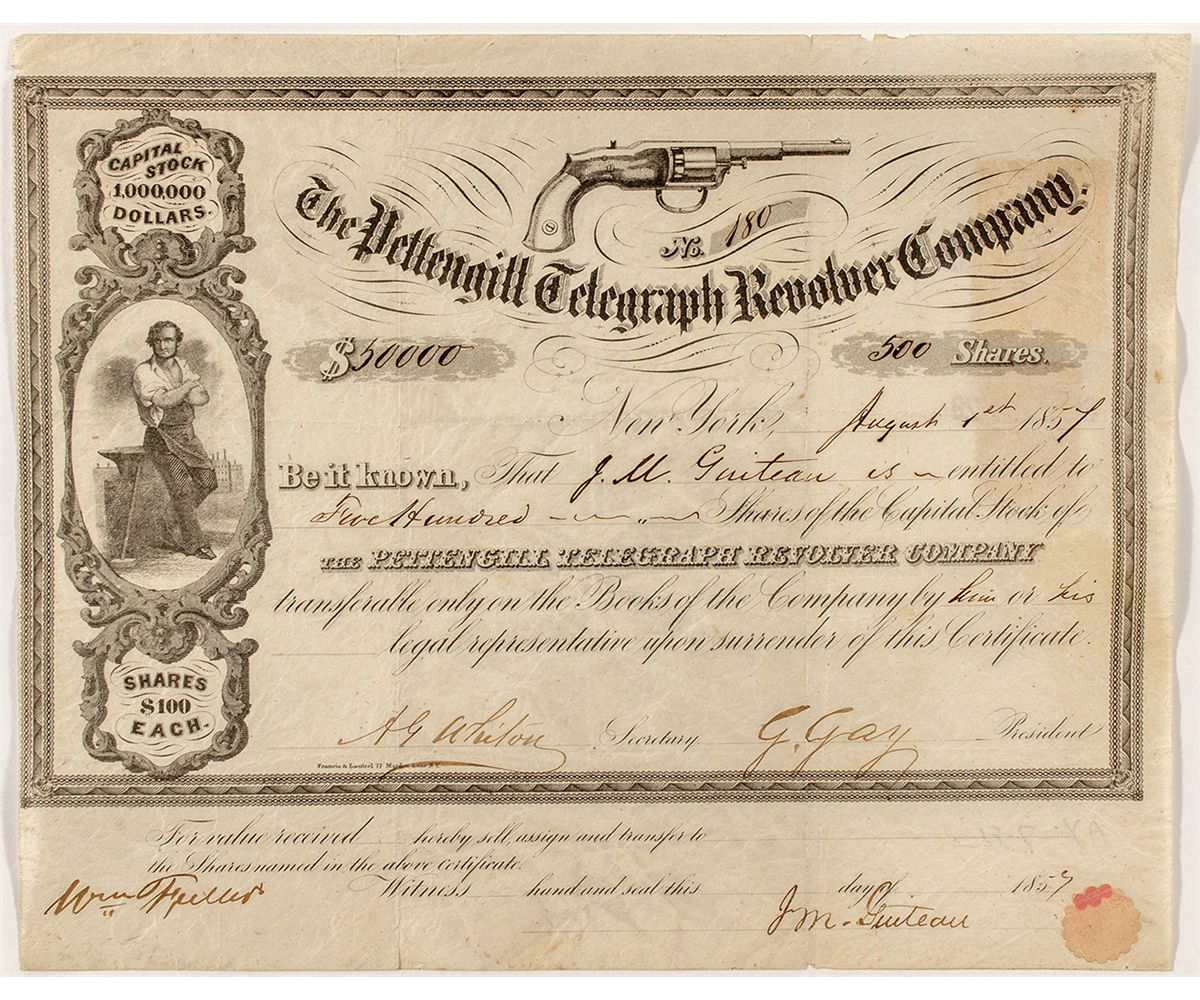 CAPITAL
STOCK
1,000,000
DOLLARS.
No. 180
The Pettengill Telegraph Revolver Company.
$50000
500 Shares.
New York, August 1st 1857
Be it known, That J. M. Guiteau is entitled to
Five Hundred Shares of the Capital Stock of
THE PETTENGILL TELEGRAPH REVOLVER COMPANY
transferable only on the Books of the Company by him or his
legal representative upon surrender of this Certificate.
SHARES
$100
EACH.
A G Whiton Secretary. G. Gay President
Francis & Loutrel 77 Maiden Lane N.Y.
For value received hereby sell, assign and transfer to
the Shares named in the above certificate.
Witness hand and seal this day of 1857
Wm
J M. Guiteau